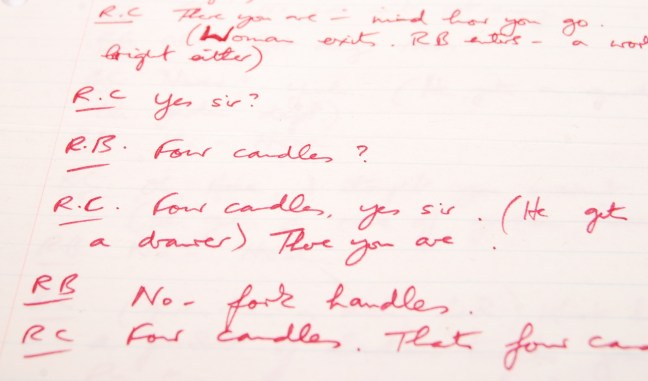 R.C There you are - mind how you go.
(Woman exits. RB enters - a
bright either)
R.C Yes sir?
R.B. Four candles?
R.C. Four candles, yes sir. (He gets
a drawer) There you are.
RB No - fork handles.
RC Four candles. Thats four